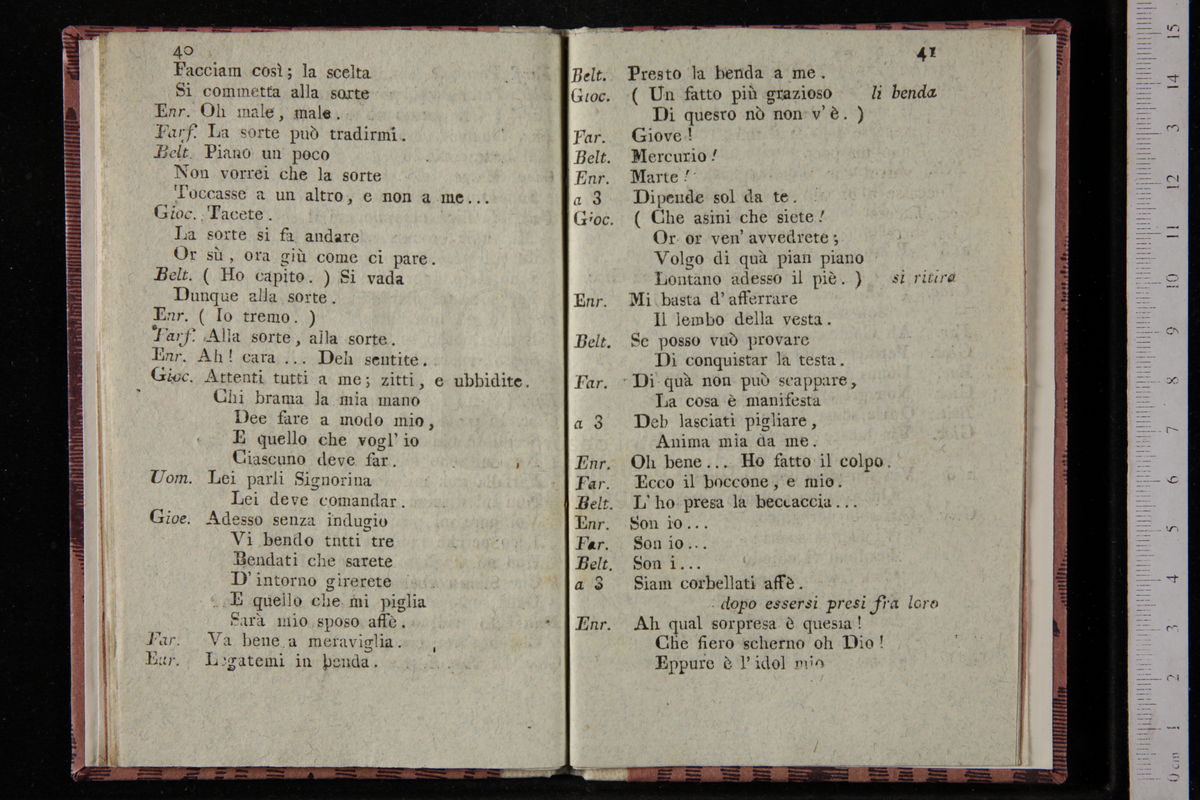 40
Facciam così; la scelta
Si commetta alla sorte
Enr. Oh male, male.
Farf. La sorte può tradirmi.
Belt. Piano un poco
Non vorrei che la sorte
Toccasse a un altro, e non a me...
Gioc. Tacete.
La sorte si fa andare
Or sù, ora giù come ci pare.
Belt. ( Ho capito. ) Si vada
Dunque alla sorte.
Enr. ( Io tremo. )
Farf. Alla sorte, alla sorte.
Enr. Ah! cara ... Deh sentite.
Gioc. Attenti tutti a me; zitti, e ubbidite.
Chi brama la mia mano
Dee fare a modo mio,
E quello che vogl' io
Ciascuno deve far.
Uom. Lei parli Signorina
Lei deve comandar.
Gioe. Adesso senza indugio
Vi bendo tntti tre
Bendati che sarete
D' intorno girerete
E quello che mi piglia
Sarà mio sposo affè.
Far. Va bene a meraviglia.
Enr. Legatemi in benda.
41
Belt. Presto la benda a me.
Gioc. ( Un fatto più grazioso li benda
Di questo nò non v' è. )
Far. Giove!
Belt. Mercurio!
Enr. Marte!
a 3 Dipende sol da te.
Gioc. ( Che asini che siete!
Or or ven' avvedrete;
Volgo di quà pian piano
Lontano adesso il piè. ) si ritira
Enr. Mi basta d' afferrare
Il lembo della vesta.
Belt. Se posso vuò provare
Di conquistar la testa.
Far. Di quà non può scappare,
La cosa è manifesta
a 3 Deh lasciati pigliare,
Anima mia da me.
Enr. Oh bene... Ho fatto il colpo.
Far. Ecco il boccone, e mio.
Belt. L' ho presa la beccaccia...
Enr. Son io...
Far. Son io...
Belt. Son i...
a 3 Siam corbellati affè.
dopo essersi presi fra loro
Enr. Ah qual sorpresa è questa!
Che fiero scherno oh Dio!
Eppure è l' idol mio